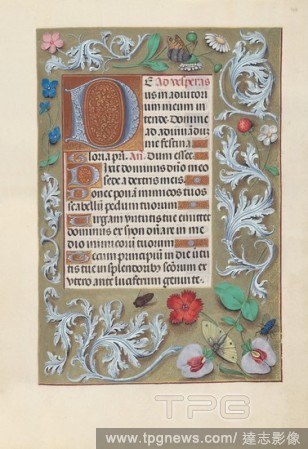 E Ad vesperas
us in adiutori
um meum in
tende. Domine
ad adiuuādum
me festina.
Gloria pr̄i. An. Dum esset
Dixit dominus dn̄o meo
sede a dextris meis.
Donec ponā inimicos tuos
scabellū pedum tuorum
Virgam virtutis tue emittet
dominus ex syon dn̄are in me
dio inimicorū tuorum
Tecum principiū in die uir
tutis tue in splendoribꝰ sc̄orum ex
vtero ante luciferum genui te.
TPG
www.tpgnews.com/達志影像